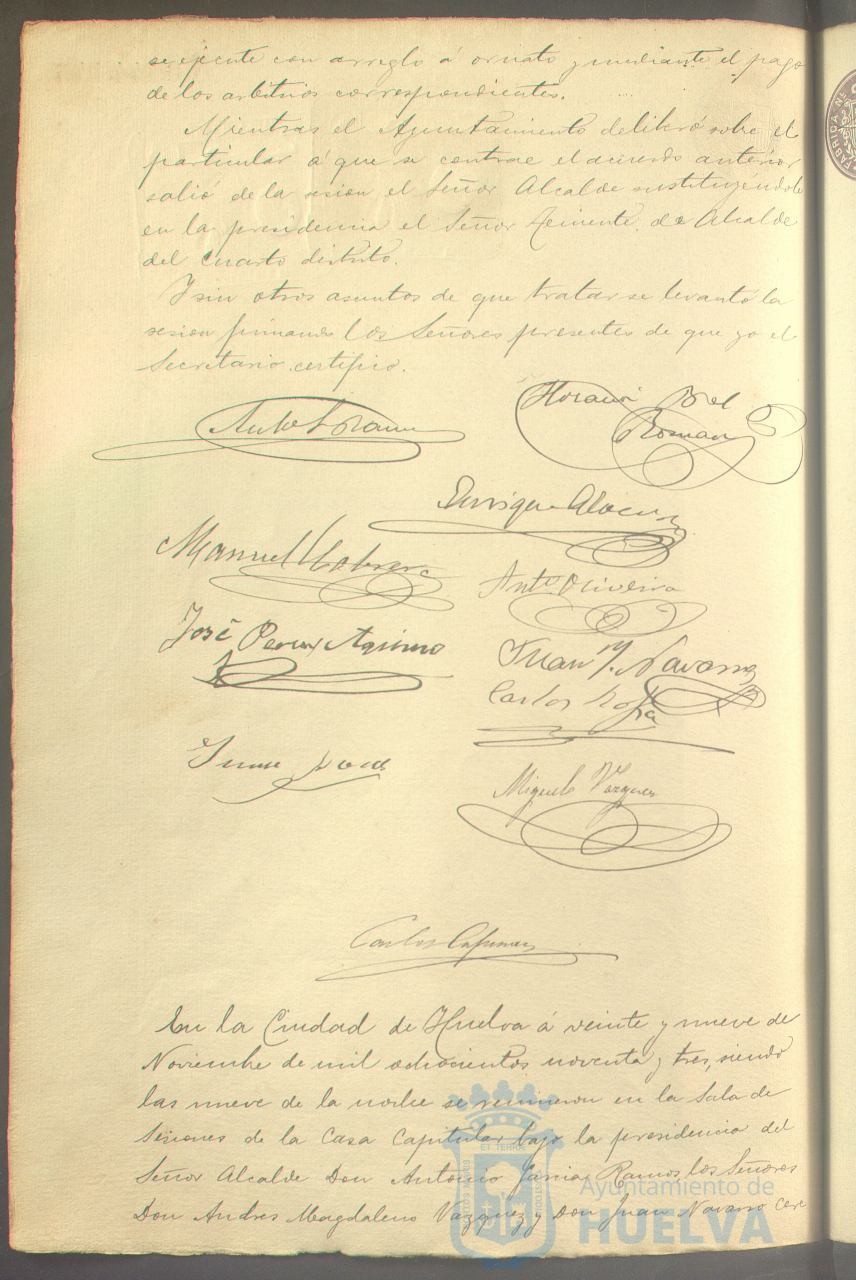 se ejecute con arreglo á ornato y mediante el pago
de los arbitrios correspondientes.
Mientras el Ayuntamiento deliberó sobre el
particular á que se contrae el acuerdo anterior
salió de la sesion el Señor Alcalde sustituyéndole
en la presidencia el Señor Teniente de Alcalde
del cuarto distrito.
Y sin otros asuntos de que tratar se levantó la
sesion firmando los Señores presentes de que yo el
Secretario certifico.
Horacio Bel
Roman
Enrique
Manuel Cabrera
Antº Oliveira
José Perez
Juan M. Navarro
Carlos
Miguel Vazquez
Carlos
En la Ciudad de Huelva á veinte y nueve de
Noviembre de mil ochocientos noventa y tres, siendo
las nueve de la noche se reunieron en la Sala de
Sesiones de la Casa Capitular bajo la presidencia del
Señor Alcalde Don Antonio Garcia Ramos, los Señores
Don Andres Magdaleno Vazquez y Don Juan Navarro
Ayuntamiento de
HUELVA